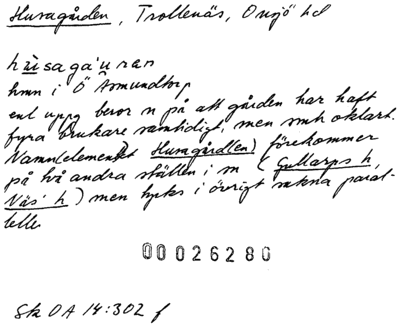 Husagården, Trollenäs, Onsjö hd
hùsagá'uran
hmn i Ö Åsmundtorp
enl uppg beror n på att gården har haft
fyra brukare samtidigt, men smh oklart.
Namn(element)et Husagård(en) förekommer
på två andra ställen i sn (Gullarps h,
Näs' h) men tycks i övrigt sakna paral-
leller
00026280
Sk OA 14:302 f